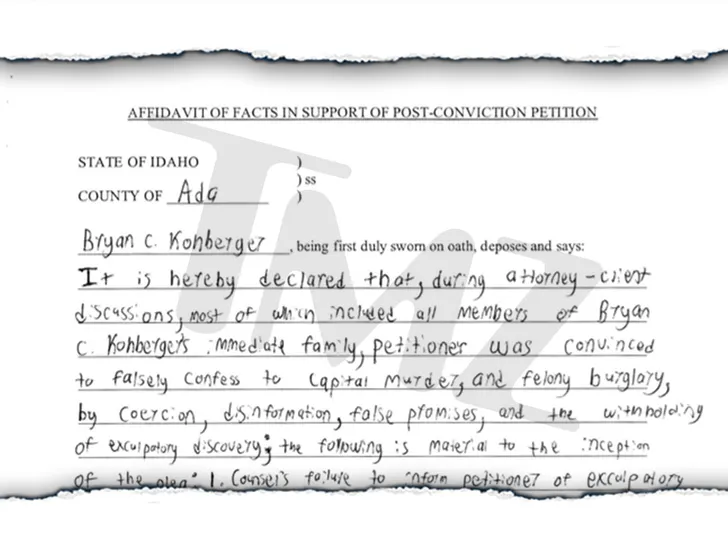 AFFIDAVIT OF FACTS IN SUPPORT OF POST-CONVICTION PETITION
STATE OF IDAHO )
) ss
COUNTY OF Ada )
Bryan C. Kohberger, being first duly sworn on oath, deposes and says:
It is hereby declared that, during attorney-client
discussions, most of which included all members of Bryan
C. Kohberger's immediate family, petitioner was convinced
to falsely confess to capital murder, and felony burglary,
by coercion, disinformation, false promises, and the withholding
of exculpatory discovery; the following is material to the inception
of the plea: 1. Counsel's failure to inform petitioner of exculpatory
TMZ